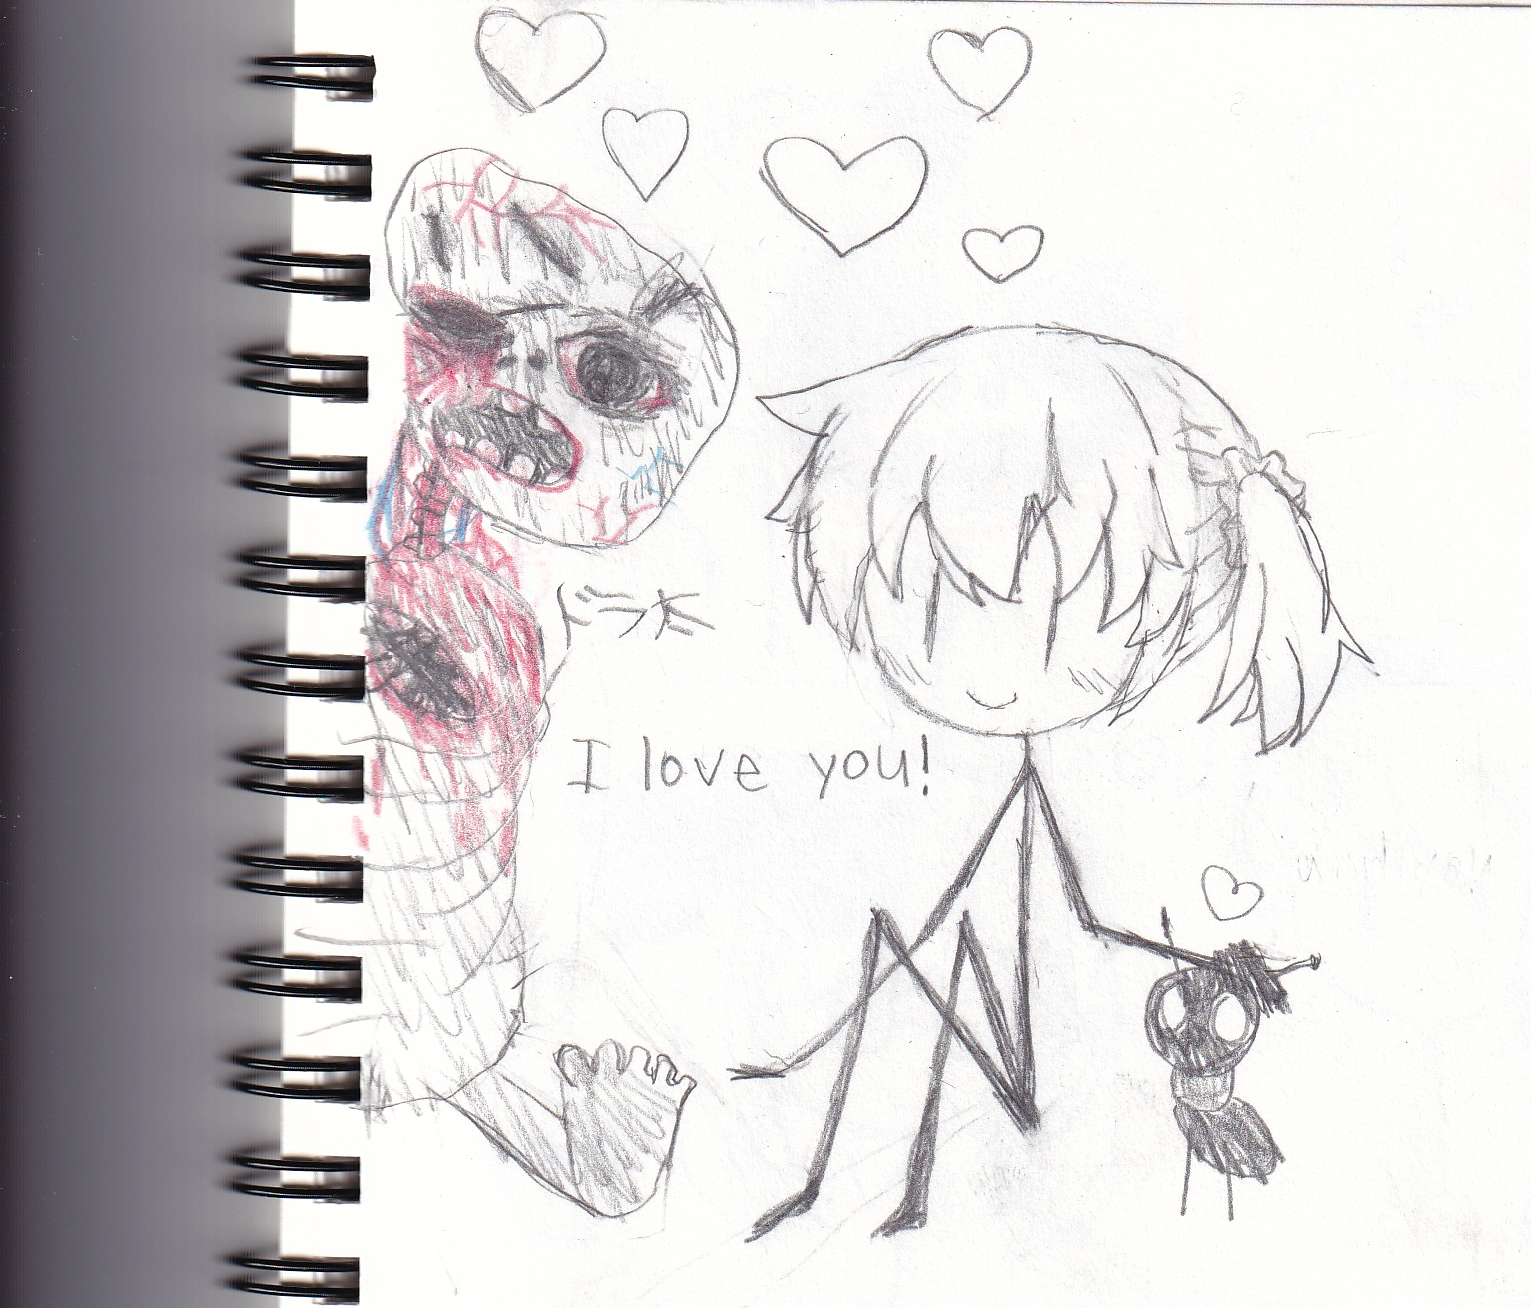 ドラ太
I love you!